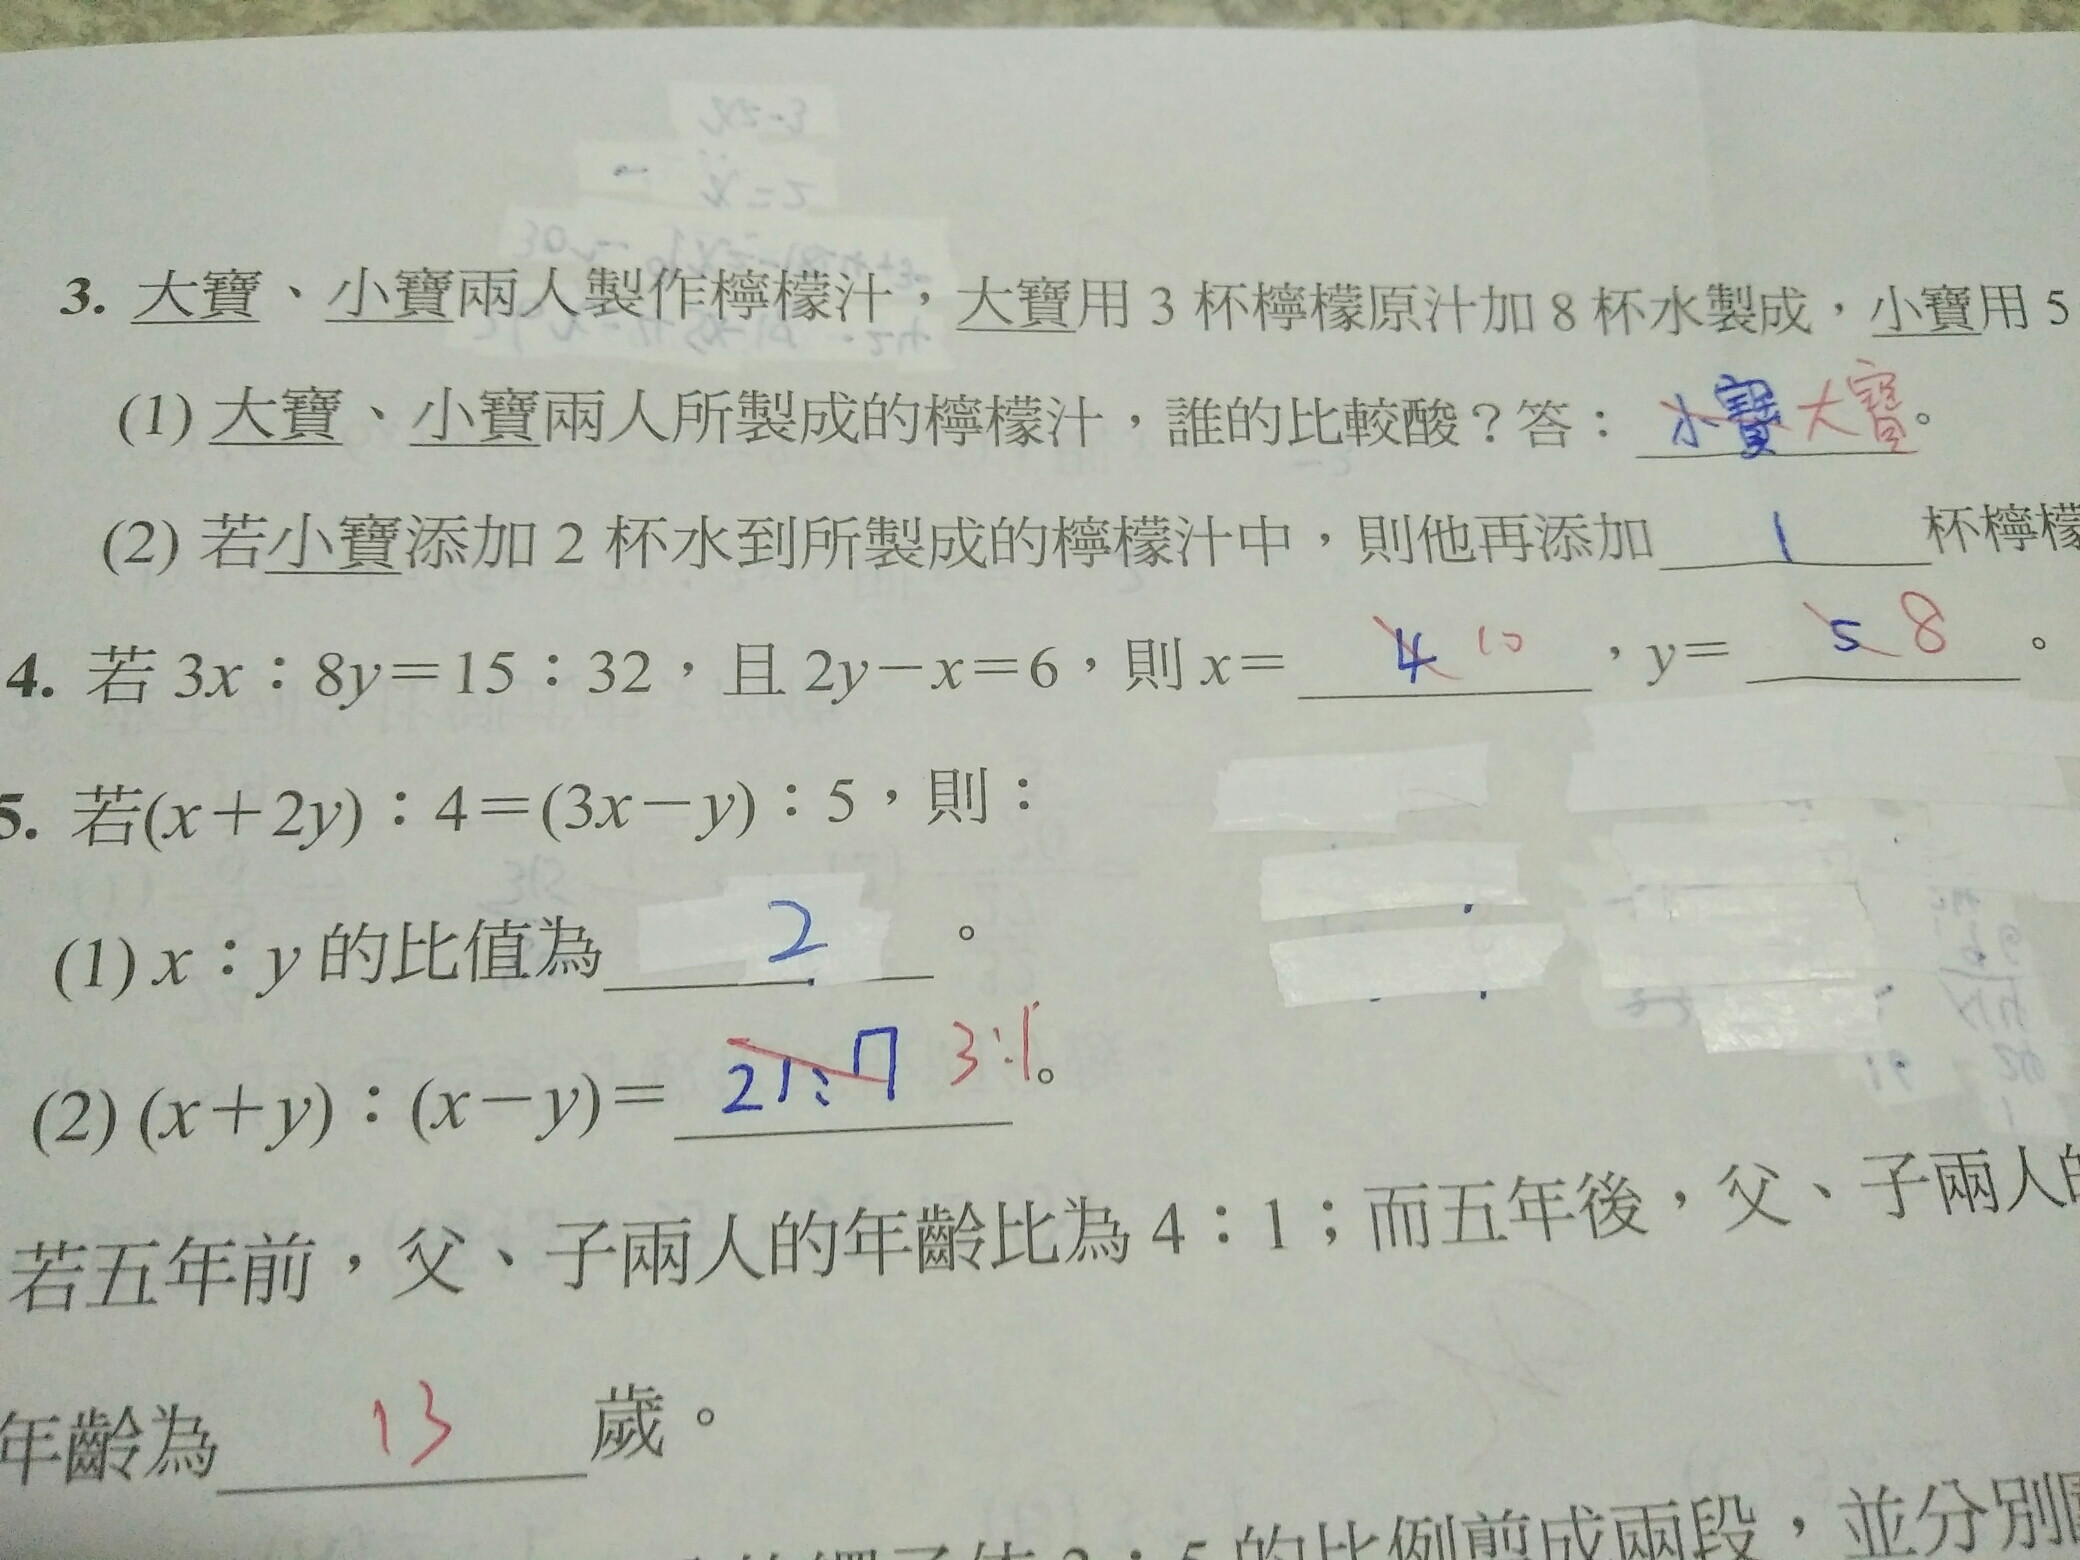 3. 大寶、小寶兩人製作檸檬汁，大寶用 3 杯檸檬原汁加 8 杯水製成，小寶用 5
(1) 大寶、小寶兩人所製成的檸檬汁，誰的比較酸？答：小寶 大寶。
(2) 若小寶添加 2 杯水到所製成的檸檬汁中，則他再添加 1 杯檸檬
4. 若 3x：8y＝15：32，且 2y－x＝6，則 x＝ 4 10 ，y＝ 5 8 。
5. 若(x＋2y)：4＝(3x－y)：5，則：
(1) x：y 的比值為 2 。
(2) (x＋y)：(x－y)＝ 21:7 3:1。
若五年前，父、子兩人的年齡比為 4：1；而五年後，父、子兩人的
年齡為 13 歲。
5 的比例剪成兩段，並分別